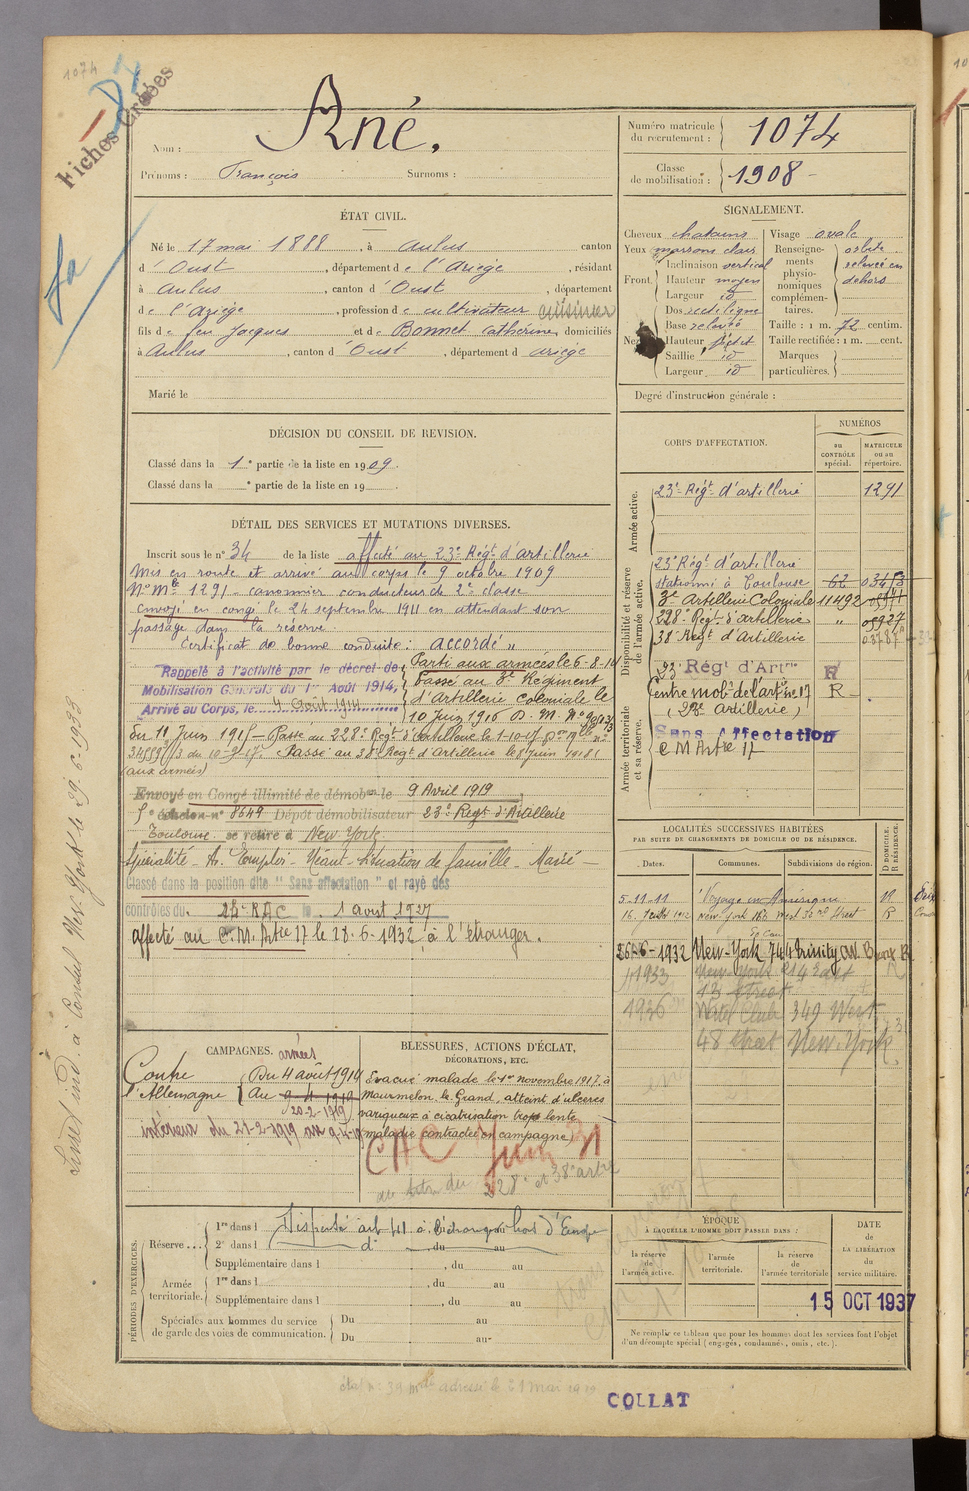 1074
Fiches Créées
Nom : Ané.
Prénoms : François Surnoms :
Numéro matricule du recrutement : 1074
Classe de mobilisation : 1908
ÉTAT CIVIL.
Né le 17 mai 1888, à Aulus canton
d'Oust, département de l'Ariège, résidant
à Aulus, canton d'Oust, département
de l'Ariège, profession de cultivateur cuisinier
fils de feu Jacques et de Bonnet Catherine, domiciliés
à Aulus, canton d'Oust, département d Ariège
Marié le
SIGNALEMENT.
Cheveux chatains
Yeux marrons clairs
Front Inclinaison vertical
Hauteur moyen
Largeur id
Nez Dos rectiligne
Base relevée
Hauteur petit
Saillie id
Largeur id
Visage ovale
Renseignements physionomiques complémentaires. orbite relevée en dehors
Taille : 1 m. 72 centim.
Taille rectifiée : 1 m. cent.
Marques particulières.
Degré d'instruction générale :
DÉCISION DU CONSEIL DE REVISION.
Classé dans la 1e partie de la liste en 1909.
Classé dans la e partie de la liste en 19
DÉTAIL DES SERVICES ET MUTATIONS DIVERSES.
Inscrit sous le n° 34 de la liste affecté au 23e Régt d'artillerie
Mis en route et arrivé au corps le 9 octobre 1909
No Mle 1291 canonnier conducteur de 2e classe
envoyé en congé le 24 septembre 1911 en attendant son
passage dans la réserve.
Certificat de bonne conduite : accordé "
Rappelé à l'activité par le décret de
Mobilisation Générale du 1er Août 1914,
Arrivé au Corps, le 4 août 1914
Parti aux armées le 6-8-14
Passé au 3e Régiment
d'Artillerie Coloniale le
10 Juin 1916 D. M. No
du 11 Juin 191 – Passé au 228e Régt d'Artillerie le 1-10-17
du 10-9-17. Passé au 38e Régt d'Artillerie le 8 Juin 1918
(aux armées)
Envoyé en Congé illimité de démobon le 9 Avril 1919
échelon n° 8649 Dépôt démobilisateur 23e Régt d'Artillerie
Toulouse se retire à New York.
Spécialité – Ar. Emploi – Néant – Situation de famille – Marié –
Classé dans la position dite "Sans affectation" et rayé des
contrôles du 23e RAC le 1 août 1927
affecté au C. M. Artie 17 le 28-6-1932 à l'Etranger.
CORPS D'AFFECTATION.
NUMÉROS
au CONTRÔLE spécial.
MATRICULE ou au répertoire.
Armée active.
23e Régt d'artillerie 1291
Disponibilité et réserve de l'armée active.
23e Régt d'artillerie
stationné à Toulouse 62
3e Artillerie Coloniale 11492
228e Régt d'Artillerie "
38e Régt d'Artillerie
Armée territoriale et sa réserve.
23e Régt d'Artie
Centre mobr de l'artie n° 17 R
(23e Artillerie)
Sans Affectation
C M Artie 17
LOCALITÉS SUCCESSIVES HABITÉES
PAR SUITE DE CHANGEMENTS DE DOMICILE OU DE RÉSIDENCE.
Dates. Communes. Subdivisions de région. D DOMICILE. R RÉSIDENCE.
5-11-11 Voyage en Amérique
New York West 56 Street R
26-6-1932 New-York 744 Trinity av. Bronx R
1933 New-York 219 East
13 Street
1936 349 West
48 Street New-York
CAMPAGNES.
Contre l'Allemagne
armées
Du 4 août 1914
Au 9-4-1919
20-2-1919
intérieur du 21-2-1919 au 9-4-19
BLESSURES, ACTIONS D'ÉCLAT,
DÉCORATIONS, ETC.
Evacué malade le 1er novembre 1917. à
Mourmelon le Grand, atteint d'ulcères
variqueux à cicatrisation trop lente
(maladie contractée en campagne)
CAC Juin 31
228e et 38e artie
PÉRIODES D'EXERCICES.
Réserve... 1re dans l Dispensé à l'étranger hors d'Europe
2e dans l d° du au
Supplémentaire dans l , du au
Armée territoriale. 1re dans l , du au
Supplémentaire dans l , du au
Spéciales aux hommes du service de garde des voies de communication. Du au
Du au
ÉPOQUE
À LAQUELLE L'HOMME DOIT PASSER DANS :
la réserve de l'armée active.
l'armée territoriale.
la réserve de l'armée territoriale
DATE de LA LIBÉRATION du service militaire.
15 OCT 1937
Ne remplir ce tableau que pour les hommes dont les services font l'objet
d'un décompte spécial (engagés, condamnés, omis, etc.).
adressé le 21 mai 1919
COLLAT